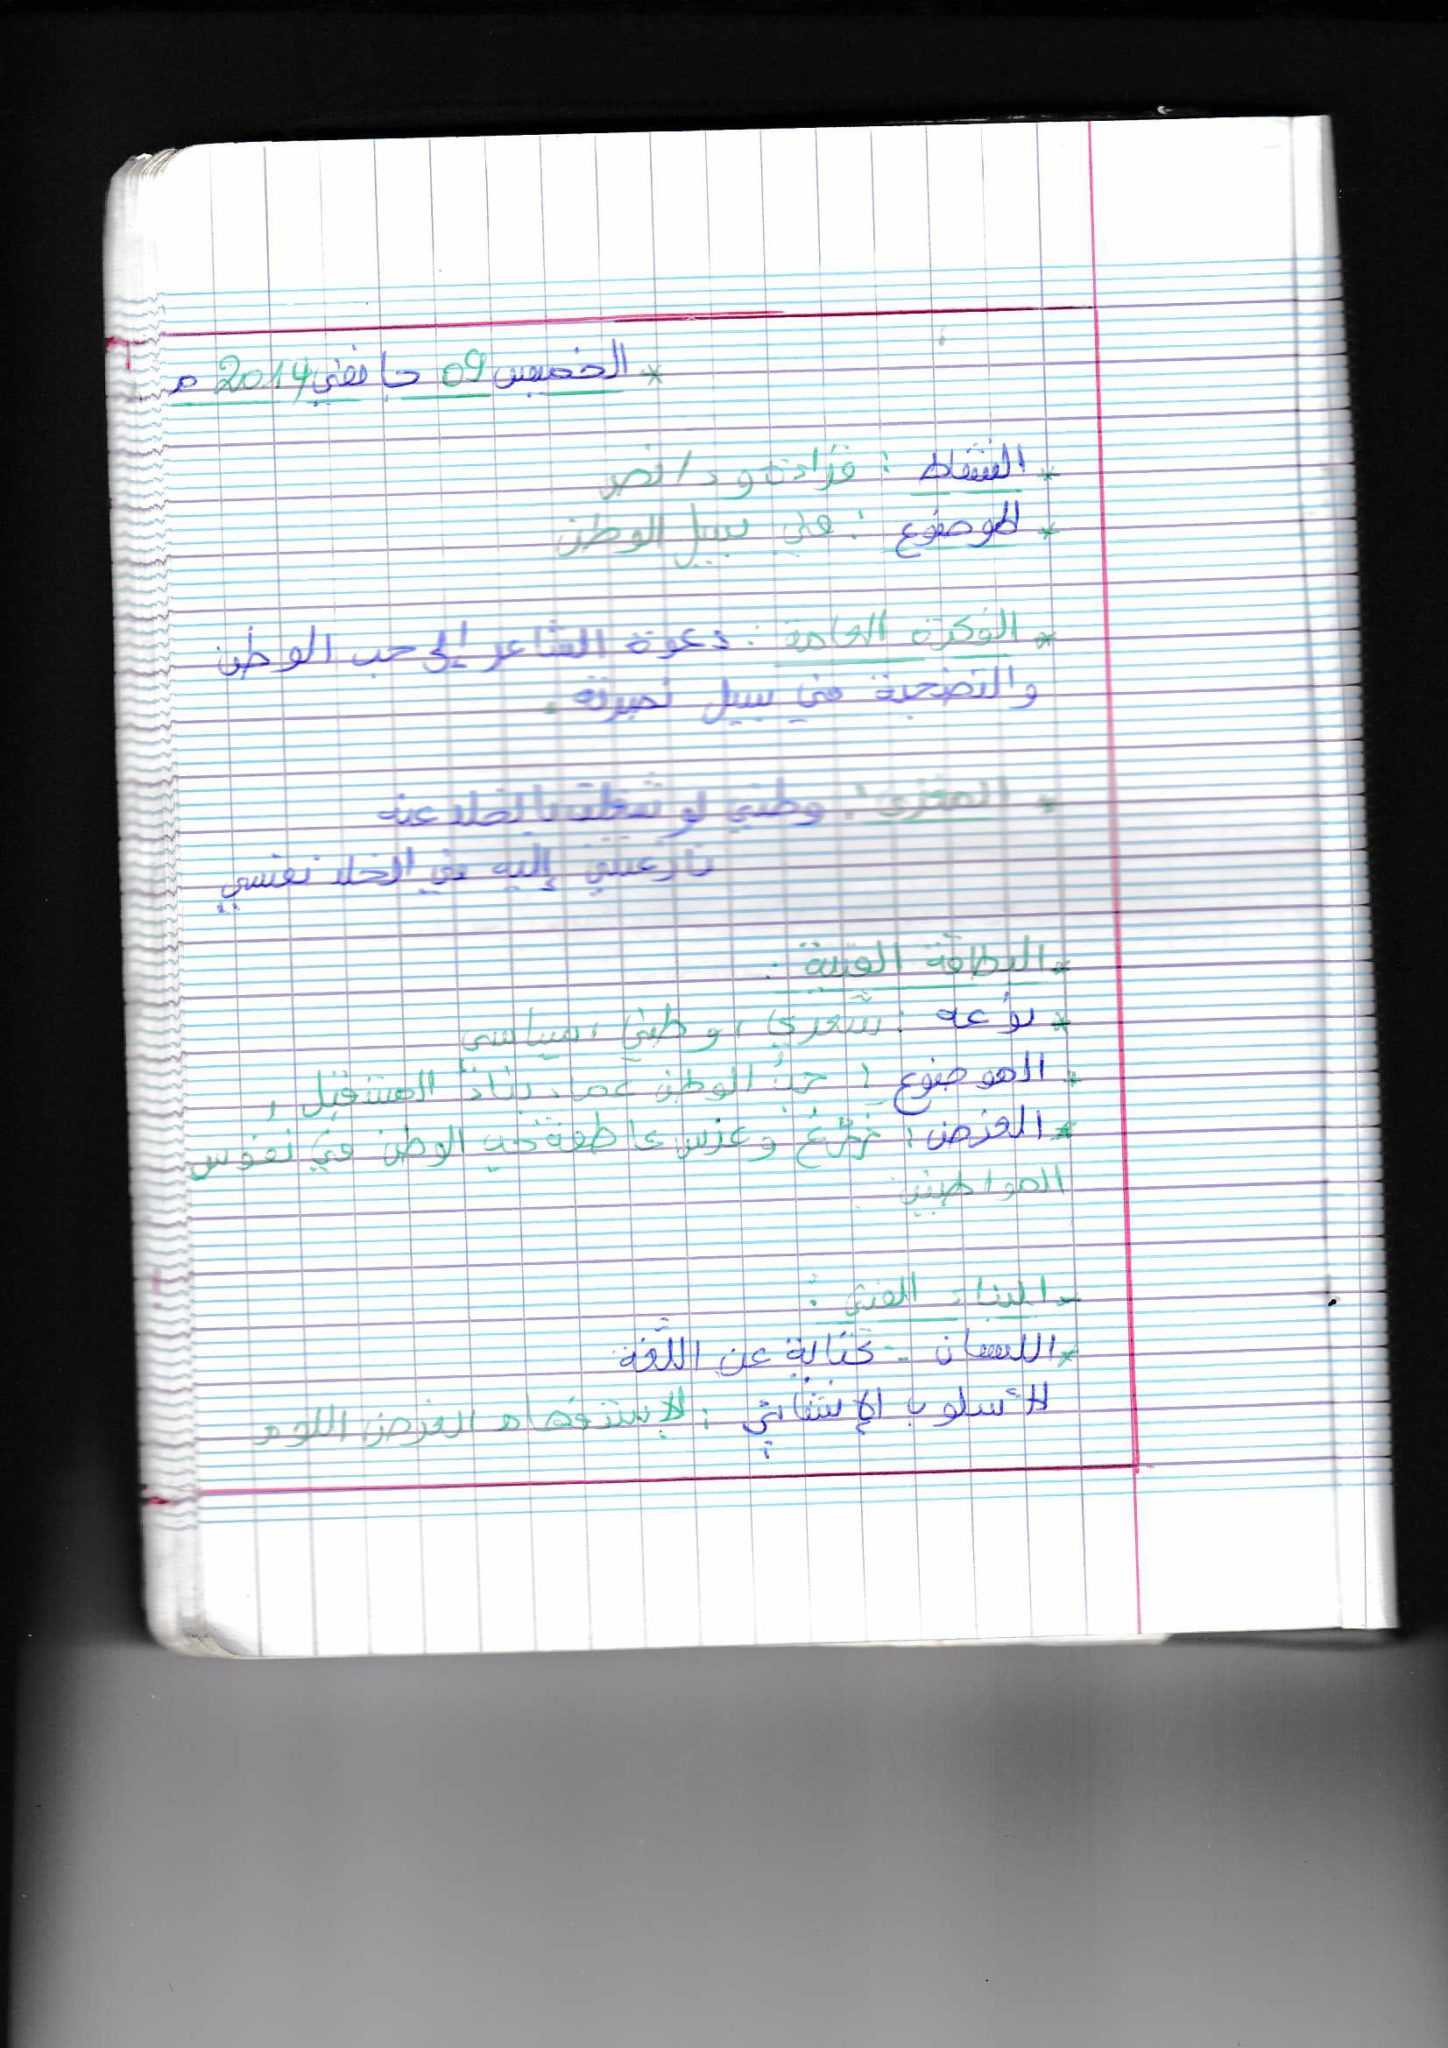 * الخميس 09 جانفي 2014 م
* النشاط : قراءة و د/نص
* الموضوع : في سبيل الوطن
* الفكرة العامة : دعوة الشاعر إلى حب الوطن
والتضحية في سبيل نصرته .
* المغزى : وطني لو شغلت بالخلد عنه
نازعتني إليه في الخلد نفسي
* البطاقة الفنية :
* نوعه : شعري ، وطني ، سياسي
* الموضوع : حب الوطن عماد بناء المستقبل ،
* الغرض : زرع وغرس عاطفة حب الوطن في نفوس
المواطنين
- البناء الفني :
* اللسان - كناية عن اللّغة
الأسلوب الإنشائي : الاستفهام الغرض اللوم